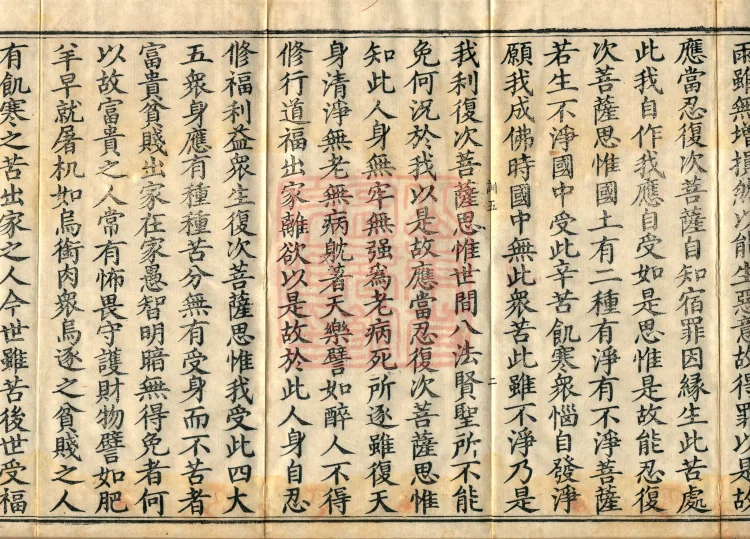 雨雖無增損然以能生惡意故得罪以是故
應當忍復次菩薩自知宿罪因緣生此苦處
此我自作我應自受如是思惟是故能忍復
次菩薩思惟國土有二種有淨有不淨菩薩
若生不淨國中受此辛苦飢寒衆惱自發淨
願我成佛時國中無此衆苦此雖不淨乃是
訓五 二
我利復次菩薩思惟世間八法賢聖所不能
免何況於我以是故應當忍復次菩薩思惟
知此人身無牢無强為老病死所逐雖復天
身清淨無老無病躭著天樂譬如醉人不得
修行道福出家離欲以是故於此人身自忍
修福利益衆生復次菩薩思惟我受此四大
五衆身應有種種苦分無有受身而不苦者
富貴貧賤出家在家愚智明暗無得免者何
以故富貴之人常有怖畏守護財物譬如肥
羊早就屠机如烏銜肉衆烏逐之貧賤之人
有飢寒之苦出家之人今世雖苦後世受福